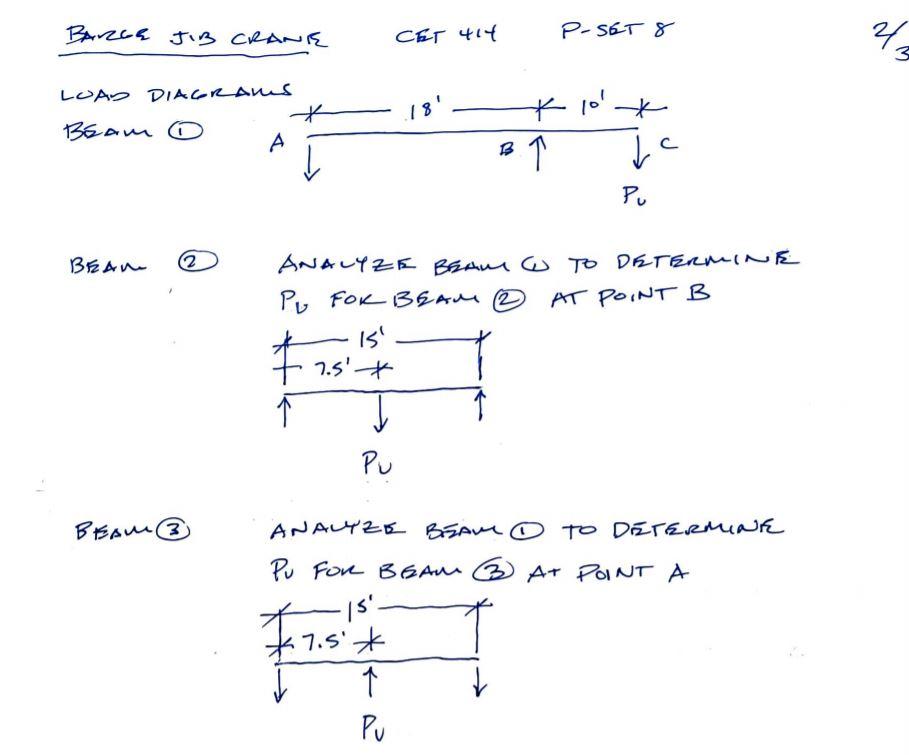 BARGE JIB CRANE CET 414 P-SET 8 2/3
LOAD DIAGRAMS
18' 10'
BEAM ①
A B C
Pu
BEAM ② ANALYZE BEAM ① TO DETERMINE
Pu FOR BEAM ② AT POINT B
15'
7.5'
Pu
BEAM ③ ANALYZE BEAM ① TO DETERMINE
Pu FOR BEAM ③ AT POINT A
15'
7.5'
Pu